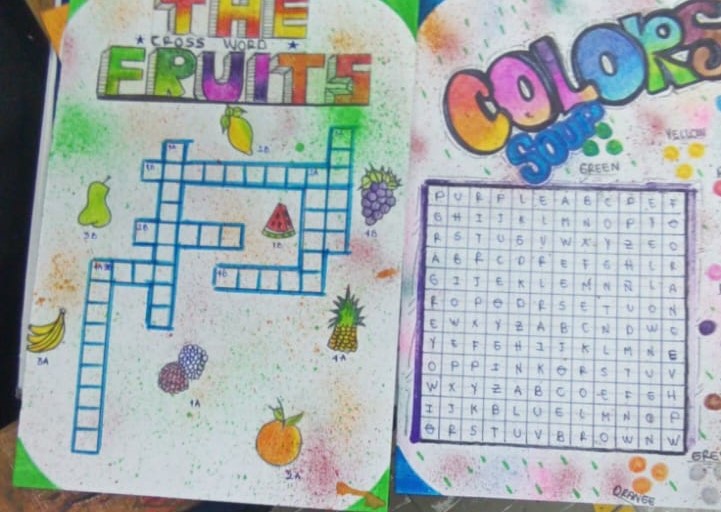 THE
★ CROSS WORD ★
FRUITS
2B
3B
1B
4B
3A
4A
1A
2A
COLORS
SOUP
GREEN
YELLOW
P U R P L E A B C D E F
G H I J K L M N O P Y O
R S T U G V W X Y Z E O
A B R C D R E F G H L R
G I J E K L E M N Ñ L A
R O P Q D R S E T U O N
E W X Y Z A B C N D W G
Y E F G H I J K L M N E
O P P I N K Q R S T U V
W X Y Z A B C D E F G H
I J K B L U E L M N O P
Q R S T U V B R O W N W
ORANGE